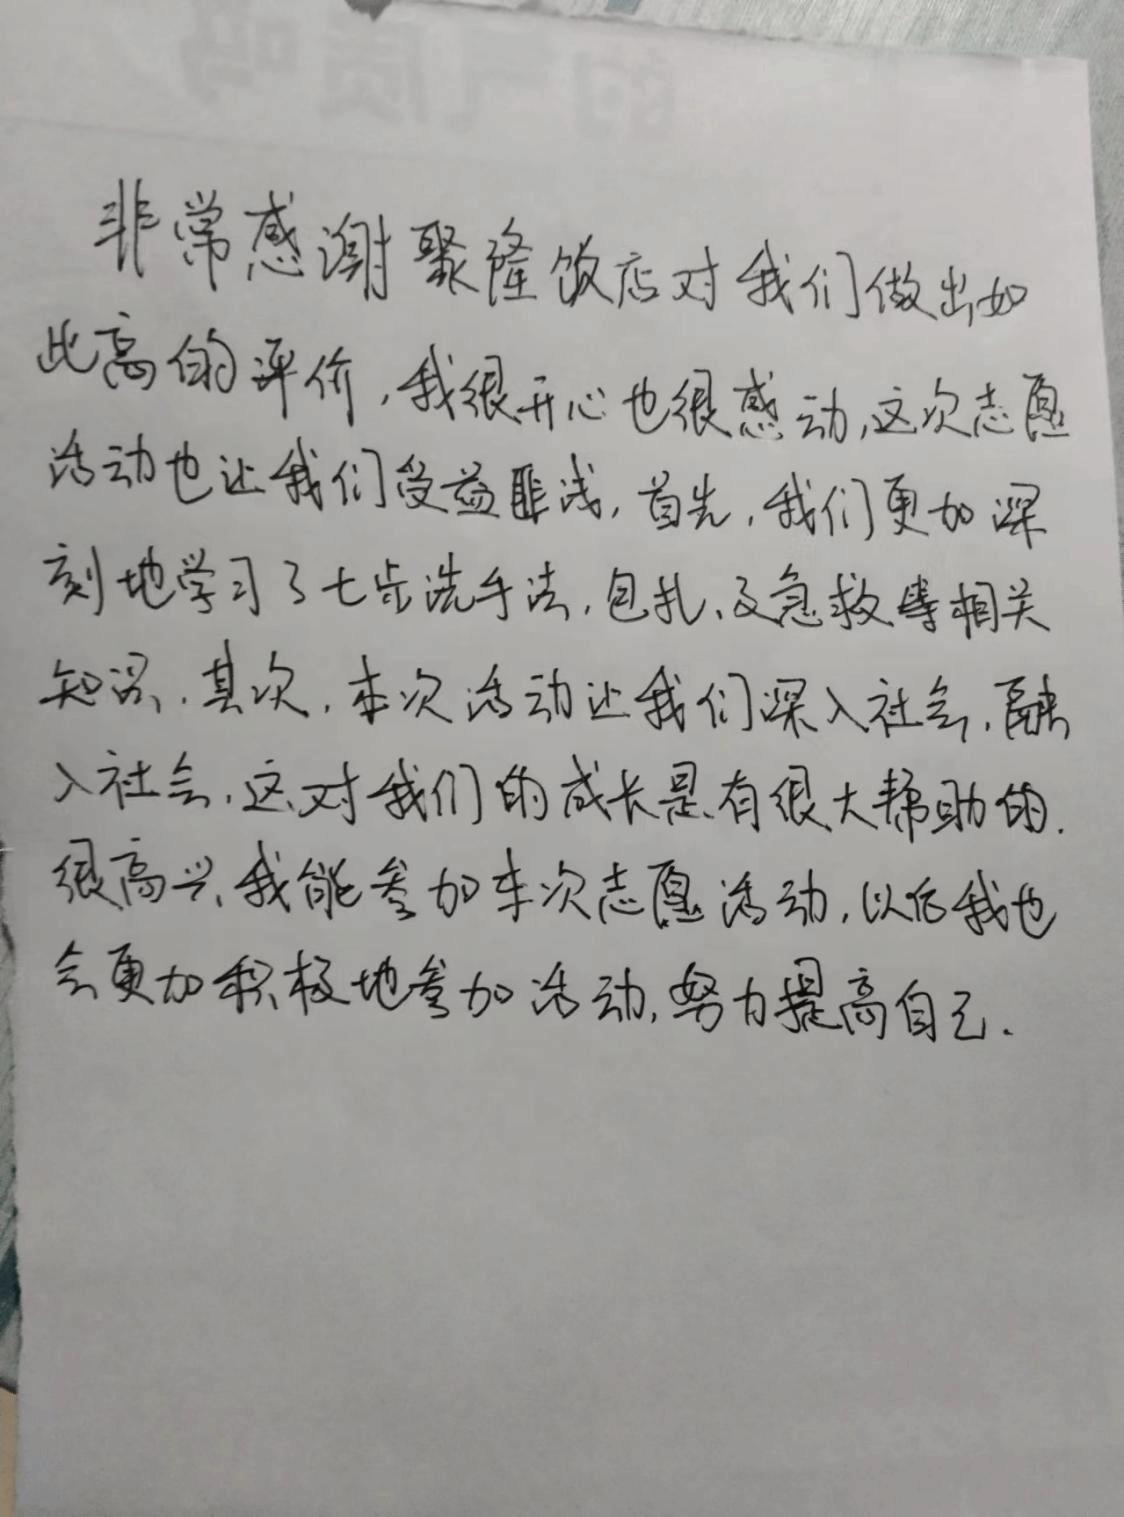 的气质吗
非常感谢聚隆饭店对我们做出如
此高的评价,我很开心也很感动,这次志愿
活动也让我们受益匪浅,首先,我们更加深
刻地学习了七步洗手法,包扎、及急救等相关
知识,其次,本次活动让我们深入社会,融
入社会,这对我们的成长是有很大帮助的.
很高兴我能参加本次志愿活动,以后我也
会更加积极地参加活动,努力提高自己.